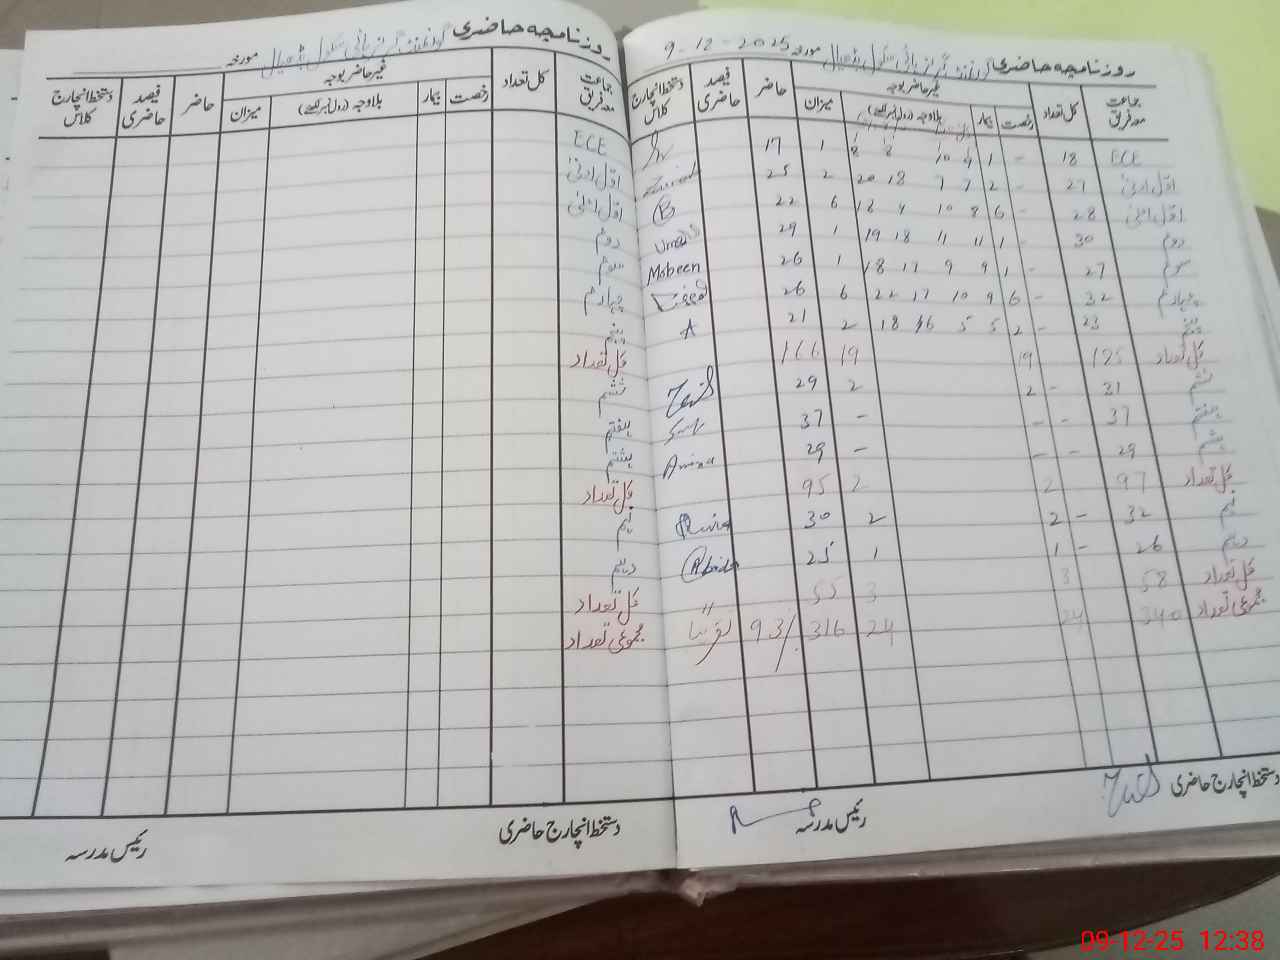 روزنامچہ حاضری گورنمنٹ گرلز ہائی سکول مورخہ 9-12-2025
جماعت معہ فریق کل تعداد غیر حاضر بوجہ حاضر فیصد حاضری دستخط انچارج کلاس
رخصت بیمار بلاوجہ (رول نمبر لکھئے) میزان
ECE 18 - 1 4 10 8 8 1 17
اول ادنیٰ 27 - 2 7 7 18 20 2 25
اول اعلیٰ 28 - 6 8 10 9 18 6 22
دوئم 30 - 1 11 11 18 19 1 29
سوئم 27 - 1 9 9 17 18 1 26 Mobeen
چہارم 32 - 6 9 10 17 22 6 26
پنجم 23 - 2 5 5 16 18 2 21 A
کل تعداد 185 19 19 166
ششم 31 - 2 2 29
ہفتم 37 - - - 37
ہشتم 29 - - - 29 Amina
کل تعداد 97 2 2 95
نہم 32 - 2 2 30
دہم 26 - 1 1 25
کل تعداد 58 3 3 55 "
مجموعی تعداد 340 24 24 316 93% تقریبا
دستخط انچارج حاضری رئیس مدرسہ
روزنامچہ حاضری گورنمنٹ گرلز ہائی سکول مورخہ
جماعت معہ فریق کل تعداد غیر حاضر بوجہ حاضر فیصد حاضری دستخط انچارج کلاس
رخصت بیمار بلاوجہ (رول نمبر لکھئے) میزان
ECE
اول ادنیٰ
اول اعلیٰ
دوئم
سوئم
چہارم
پنجم
کل تعداد
ششم
ہفتم
ہشتم
کل تعداد
نہم
دہم
کل تعداد
مجموعی تعداد
دستخط انچارج حاضری رئیس مدرسہ
09-12-25 12:38